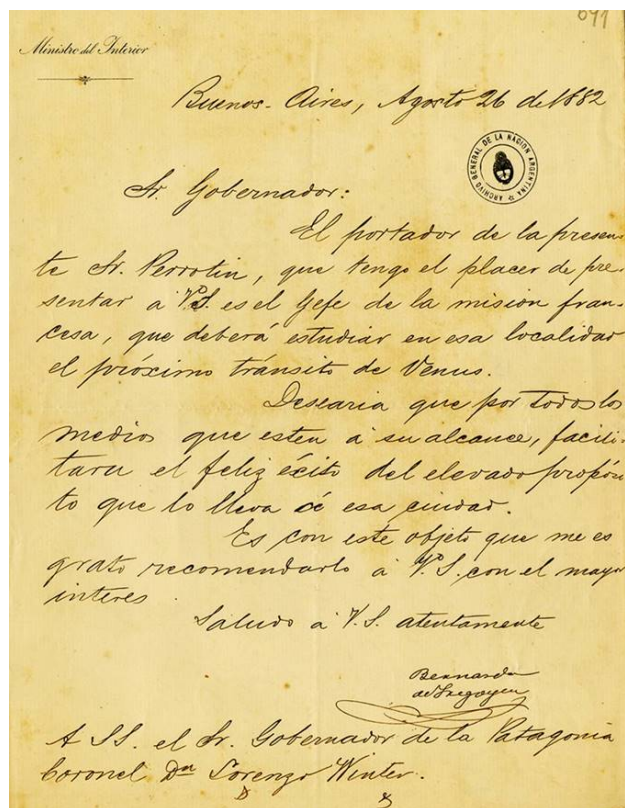 691
Ministro del Interior
Buenos-Aires, Agosto 26 de 1882
ARCHIVO GENERAL DE LA NACION ARGENTINA
Sr. Gobernador:
El portador de la presen-
te Sr. Perrotin, que tengo el placer de pre-
sentar á V.S. es el Gefe de la mision fran-
cesa, que deberá estudiar en esa localidad
el próximo tránsito de Venus.
Desearia que por todos los
medios que esten á su alcance, facili-
tara el feliz éxito del elevado propósi-
to que lo lleva á esa ciudad.
Es con este objeto que me es
grato recomendarlo á V.S. con el mayor
interes.
Saludo á V.S. atentamente
Bernardo
de Irigoyen
A S.S. el Sr. Gobernador de la Patagonia
Coronel Dn Lorenzo Winter.